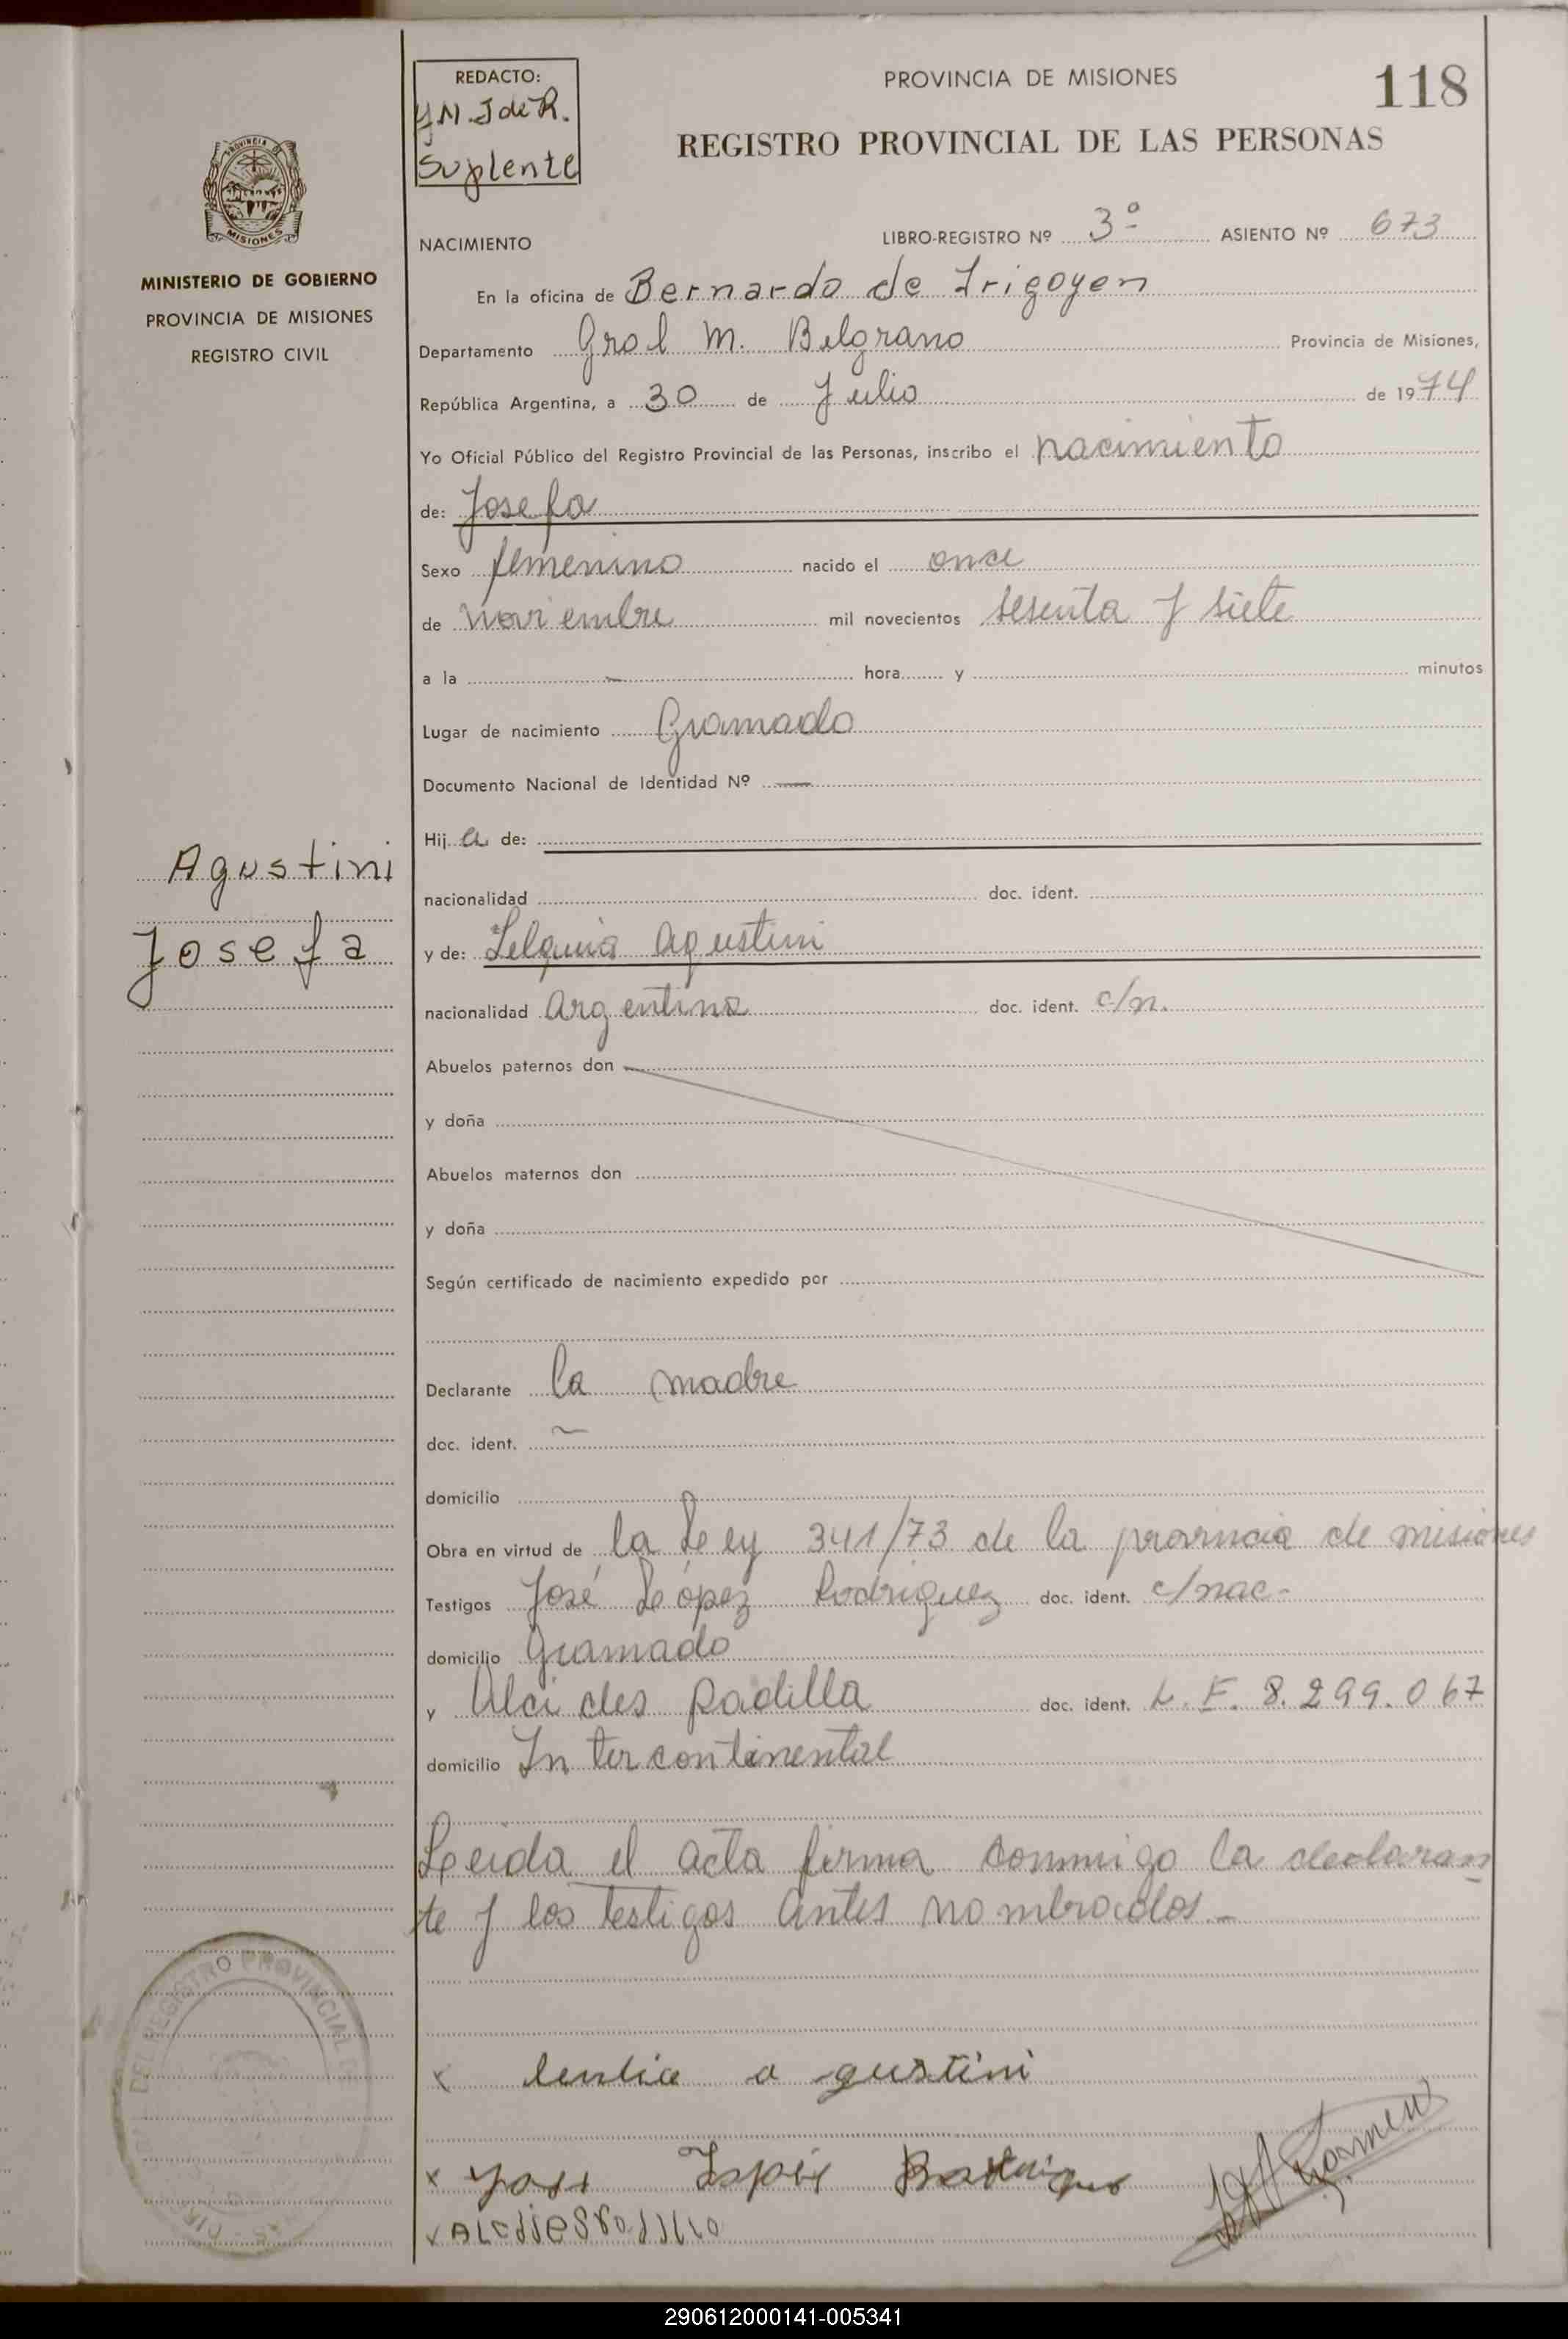 REDACTO:
Y.N.J de R.
Suplente
PROVINCIA DE MISIONES
118
REGISTRO PROVINCIAL DE LAS PERSONAS
PROVINCIA DE
MISIONES
MINISTERIO DE GOBIERNO
PROVINCIA DE MISIONES
REGISTRO CIVIL
NACIMIENTO LIBRO-REGISTRO Nº 3º ASIENTO Nº 673
En la oficina de Bernardo de Irigoyen
Departamento Gral M. Belgrano Provincia de Misiones,
República Argentina, a 30 de Julio de 1974
Yo Oficial Público del Registro Provincial de las Personas, inscribo el nacimiento
de: Josefa
Sexo femenino nacido el once
de noviembre mil novecientos sesenta y siete
a la hora y minutos
Lugar de nacimiento Gramado
Documento Nacional de Identidad Nº —
Hij a de:
Agustini
Josefa
nacionalidad doc. ident.
y de: Agustini
nacionalidad argentina doc. ident. c/n.
Abuelos paternos don
y doña
Abuelos maternos don
y doña
Según certificado de nacimiento expedido por
Declarante la madre
doc. ident.
domicilio
Obra en virtud de la Ley 341/73 de la provincia de misiones
Testigos José López Rodriguez doc. ident. c/nac-
domicilio Gramado
y Alcides Padilla doc. ident. L.E. 8.299.067
domicilio Intercontinental
Leida el acta firma conmigo la declaran
te y los testigos antes nombrados-
DEL REGISTRO PROVINCIAL DE
x agustini
x
x
290612000141-005341